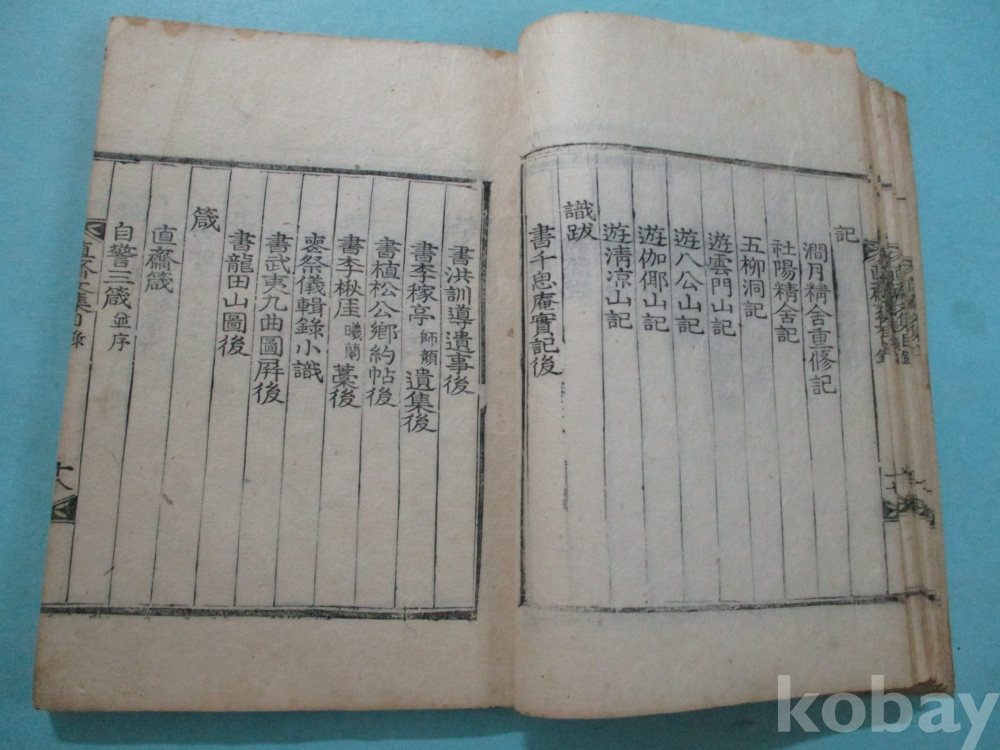 記
澗月精舍重修記
社陽精舍記
五柳洞記
遊雲門山記
遊八公山記
遊伽倻山記
遊淸凉山記
識跋
書千思庵實記後
書洪訓導遺事後
書李稼亭師顏遺集後
書植松公鄉約帖後
書李楸厓曦蘭藁後
喪祭儀輯錄小識
書武夷九曲圖屛後
書龍田山圖後
箴
直齋箴
自警三箴並序
直齋文集目錄
十八
kobay